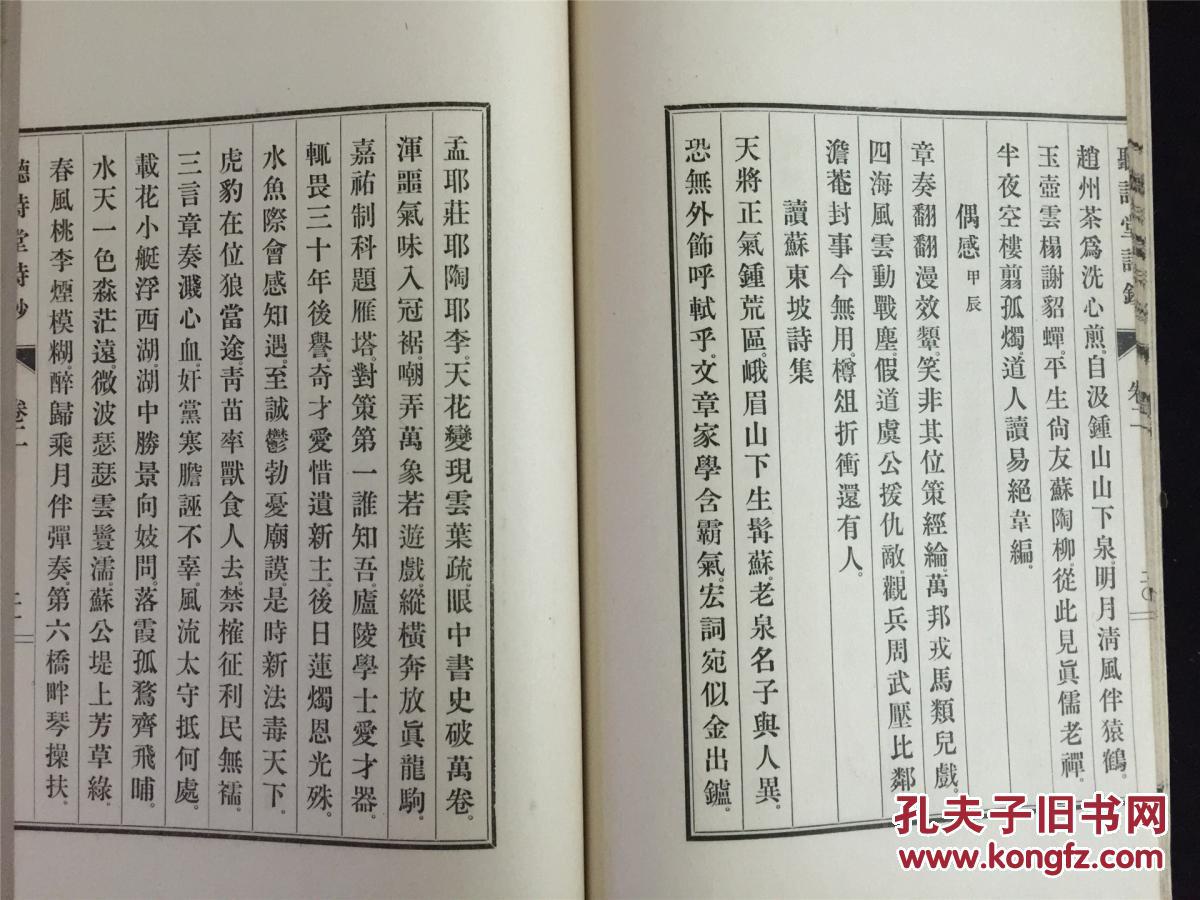 聽詩堂詩鈔
卷二
趙州茶爲洗心煎。自汲鍾山山下泉。明月淸風伴猿鶴。
玉壺雲榻謝貂蟬。平生尙友蘇陶柳。從此見眞儒老禪。
半夜空樓翦孤燭。道人讀易絕韋編。
偶感 甲辰
章奏翻翻漫效顰。笑非其位策經綸。萬邦戎馬類兒戲。
四海風雲動戰塵。假道虞公援仇敵。觀兵周武壓比鄰
澹菴封事今無用。樽俎折衝還有人。
讀蘇東坡詩集
天將正氣鍾荒區。峨眉山下生髯蘇。老泉名子與人異。
恐無外飾呼軾乎。文章家學含霸氣。宏詞宛似金出鑪。
孟耶莊耶陶耶李。天花變現雲葉疏。眼中書史破萬卷。
渾噩氣味入冠裾。嘲弄萬象若遊戲。縱橫奔放眞龍駒。
嘉祐制科題雁塔。對策第一誰知吾。廬陵學士愛才器。
輒畏三十年後譽。奇才愛惜遺新主。後日蓮燭恩光殊。
水魚際會感知遇。至誠鬱勃憂廟謨。是時新法毒天下。
虎豹在位狼當途。靑苗率獸食人去。禁榷征利民無襦。
三言章奏濺心血。奸黨寒膽誣不辜。風流太守抵何處。
載花小艇浮西湖。湖中勝景向妓問。落霞孤鶩齊飛晡。
水天一色淼茫遠。微波瑟瑟雲鬟濡。蘇公堤上芳草綠。
春風桃李煙模糊。醉歸乘月伴彈奏。第六橋畔琴操扶。
聽詩堂詩鈔
卷二
孔夫子旧书网
www.kongfz.com